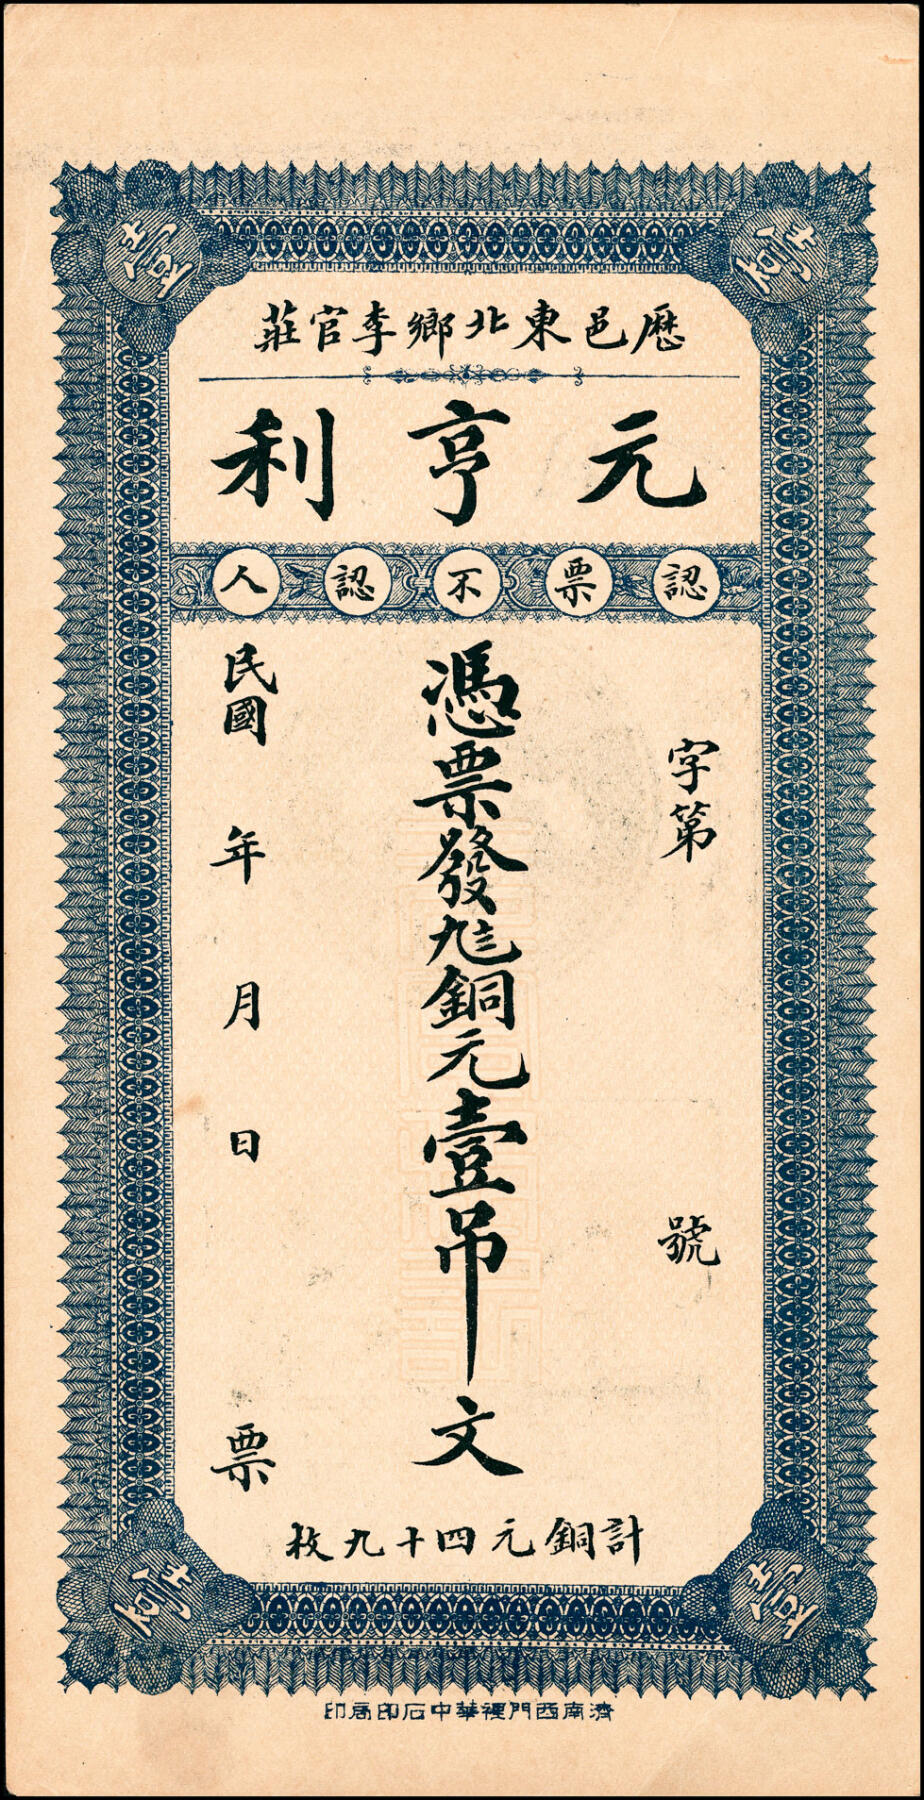 壹
壹
歷邑東北鄉李官莊
元亨利
認票不認人
字第
號
憑票發九七銅元壹吊文
民國
年
月
日
票
計銅元四十九枚
壹
壹
濟南西門裡華中石印局印